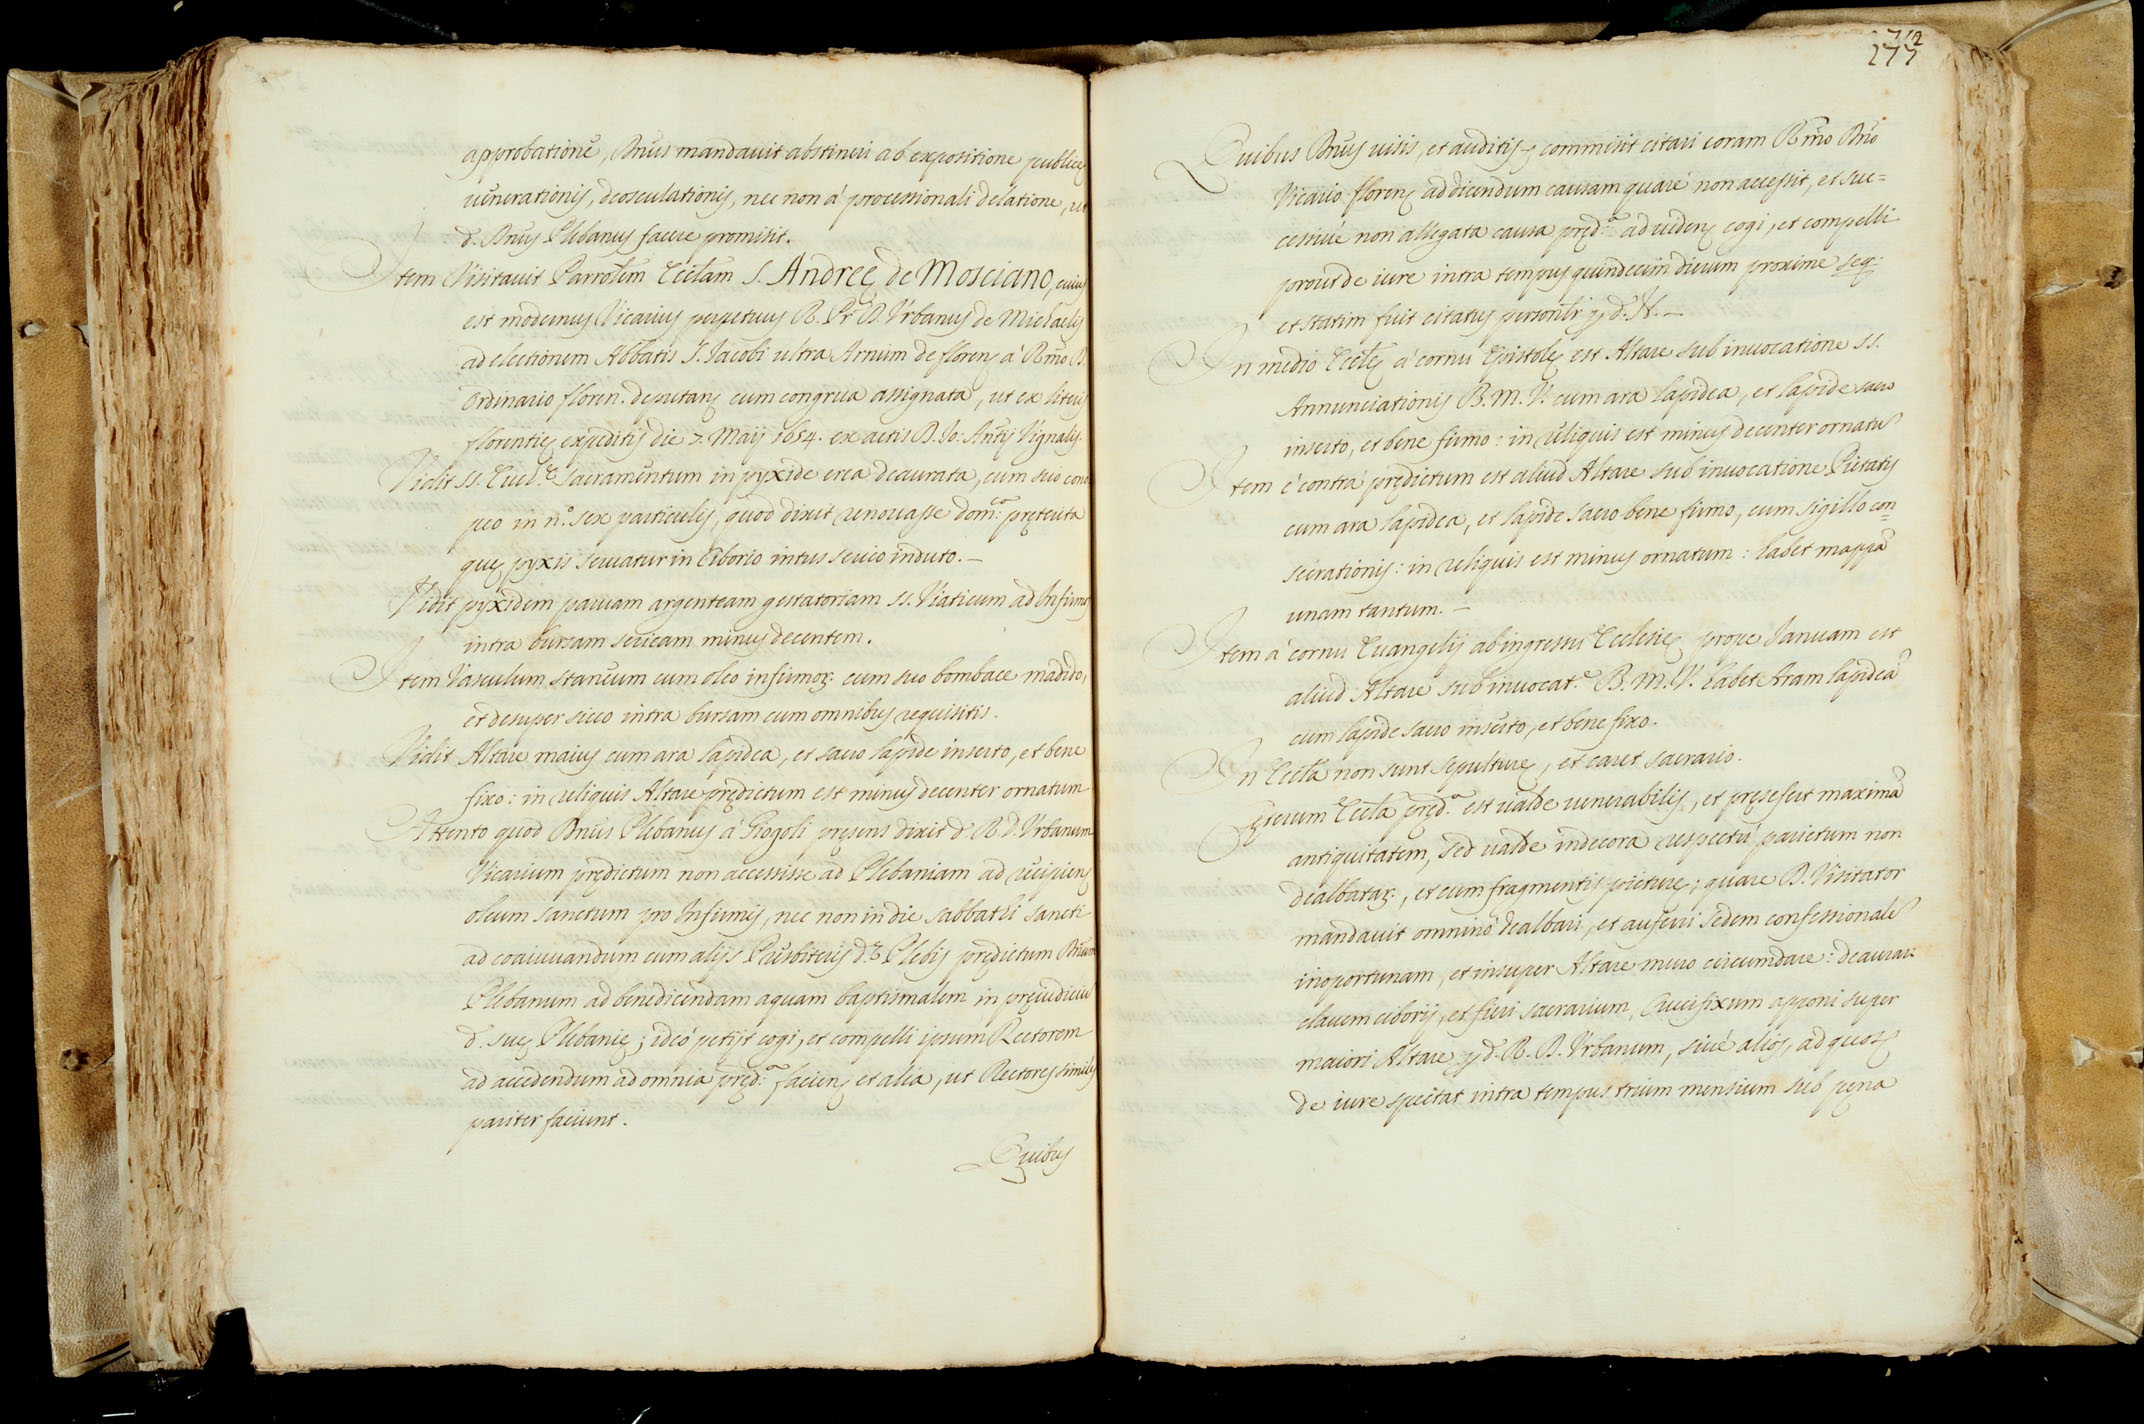 approbationẽ, Dñus mandavit abstineri ab expositione publicę
venerationis, deosculationis, nec non á processionali delatione, ut
d. Dñus Plebanus facere promisit.
Item Visitavit Parrolem Eccłam S. Andreę de Mosciano, cuius
est modernus Vicarius perpetuus R. Pr D. Vrbanus de Michaelis
ad electionem Abbatis S. Iacobi ultra Arnum de floren; á Rmo D.
Ordinario floren. deputatus cum congrua assignata, ut ex literis
florentię expeditis die 7. Maij 1654. ex actis D. Io: Antij Vignalis.
Vidit SS. Euch.ę Sacramentum in pyxide erea deaurata, cum suo cono
peo in n.º sex particulis, quod dixit renovasse dom.ca pręterita
quę pyxis servatur in Ciborio intus serico induto. –
Vidit pyxidem parvam argenteam gestatoriam SS. Viaticum ad Infirmos
intra bursam sericam minus decentem.
Item Vasculum stanẽum cum oleo infirmoꝝ: cum suo bombace madido,
et desuper sicco intra bursam cum omnibus requisitis.
Vidit Altare maius cum ara lapidea, et sacro lapide inserto, et bene
fixo: in reliquis Altare prędictum est minus decenter ornatum
Attento quod Dñus Plebanus á Giogoli pręsens dixit d. R. D. Vrbanum
Vicarium prędictum non accessisse ad Plebaniam ad recipienꝫ
oleum sanctum pro Infirmis, nec non in die sabbathi sancti
ad coaiuuandum cum alijs Prẽsbiteris d.ę Plebis prędictum Dñum
Plebanum ad benedicendam aquam baptismalem in pręiudiciũ
d. suę Plebanię; ideó petijt cogi, et compelli ipsum Rectorem
ad accedendum ad omnia pręd.a facienꝫ et alia, ut Rectores similes
pariter faciunt.
Quibus
712
277
Quibus Dñus visis, et auditis, commisit citari coram Rmo Dño
Vicario florenꝫ ad dicendum causam quaré non accessit, et suc=
cessivé non allegata causa pręd.a ad videnꝫ cogi, et compelli
prout de iure intra tempus quindecim dierum proxime seq:
et statim fuit citatus personłr ꝑ d. N. –
In medio Eccłę á cornu Epistolę est Altare sub invocatione SS.
Annunciationis B. M. V. cum ara lapidea, et lapide sacro
inserto, et bene firmo: in reliquis est minus decenter ornatũ
Item é contrá prędictum est aliud Altare sub invocatione Pietatis
cum ara lapidea, et lapide sacro bene firmo, cum sigillo con=
secrationis: in reliquis est minus ornatum: habet mappã
unam tantum. –
Item á cornu Evangelij ab ingressu Ecclesię prope Ianuam est
aliud Altare sub invocat.e B. M. V. habet Aram lapideã
cum lapide sacro inserto, et bene fixo.
In Eccła non sunt sepulturę, et caret sacrario.
Cęterum Eccła pręd.a est valde venerabilis, et pręsefert maximã
antiquitatem, sed valde indecora respectu parietum non
dealbataꝝ:, et cum fragmentis picturę; quare D. Visitator
mandavit omninó dealbari, et auferri sedem confessionalẽ
inoportunam, et insuper Altare muro circumdare: deaurari
clavem ciborij, et fieri sacrarium, Crucifixum apponi super
maiori Altare ꝑ d. R. D. Vrbanum, sivé alios, ad quos
de iure spectat intra tempus trium mensium sub pęna